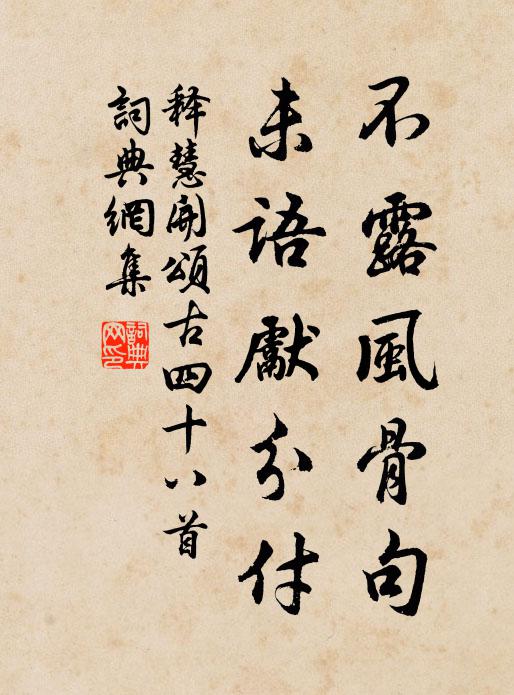 不露風骨句
未語獻分付
释慧開頌古四十八首
詞典網集
詞典网印